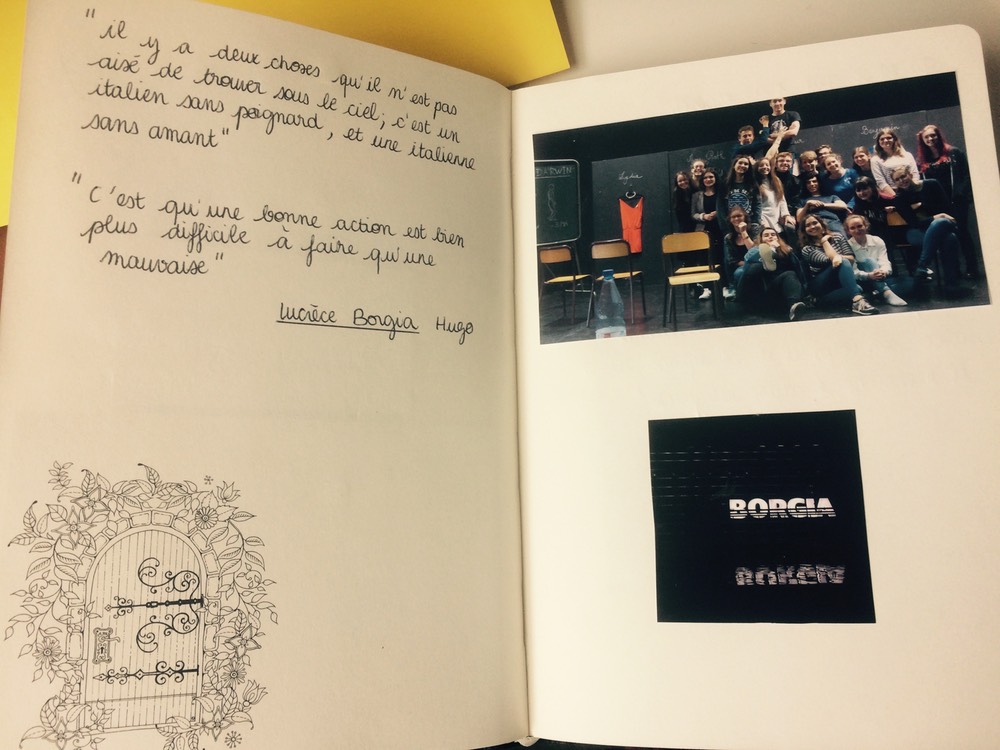 "il y a deux choses qu'il n'est pas
aisé de trouver sous le ciel; c'est un
italien sans poignard, et une italienne
sans amant"
"C'est qu'une bonne action est bien
plus difficile à faire qu'une
mauvaise"
Lucrèce Borgia Hugo
BORGIA